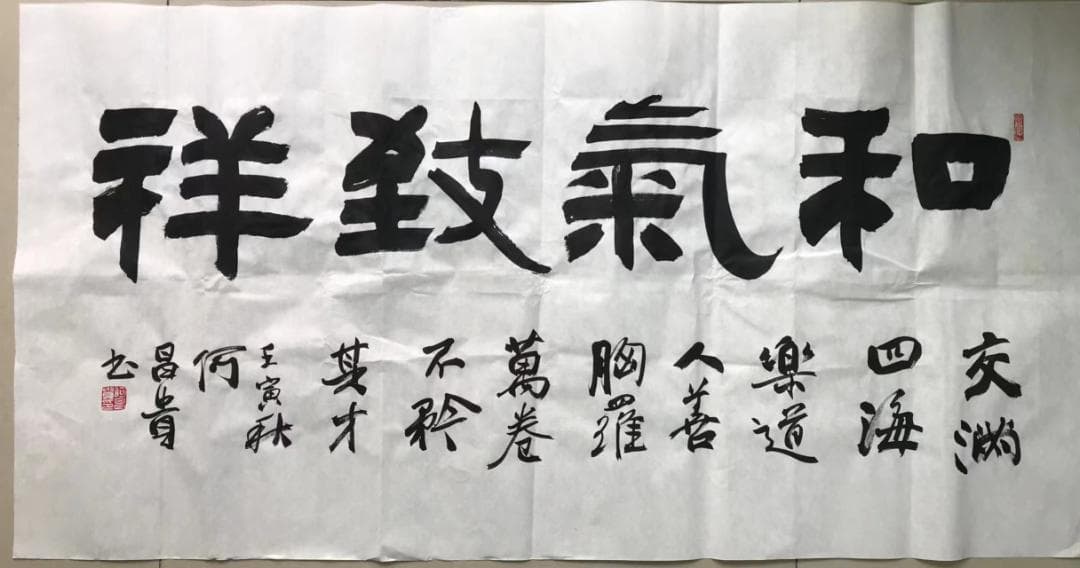 和氣致祥
交滿
四海
樂道
人善
胸羅
萬卷
不矜
其才
壬寅秋
何
昌貴
书